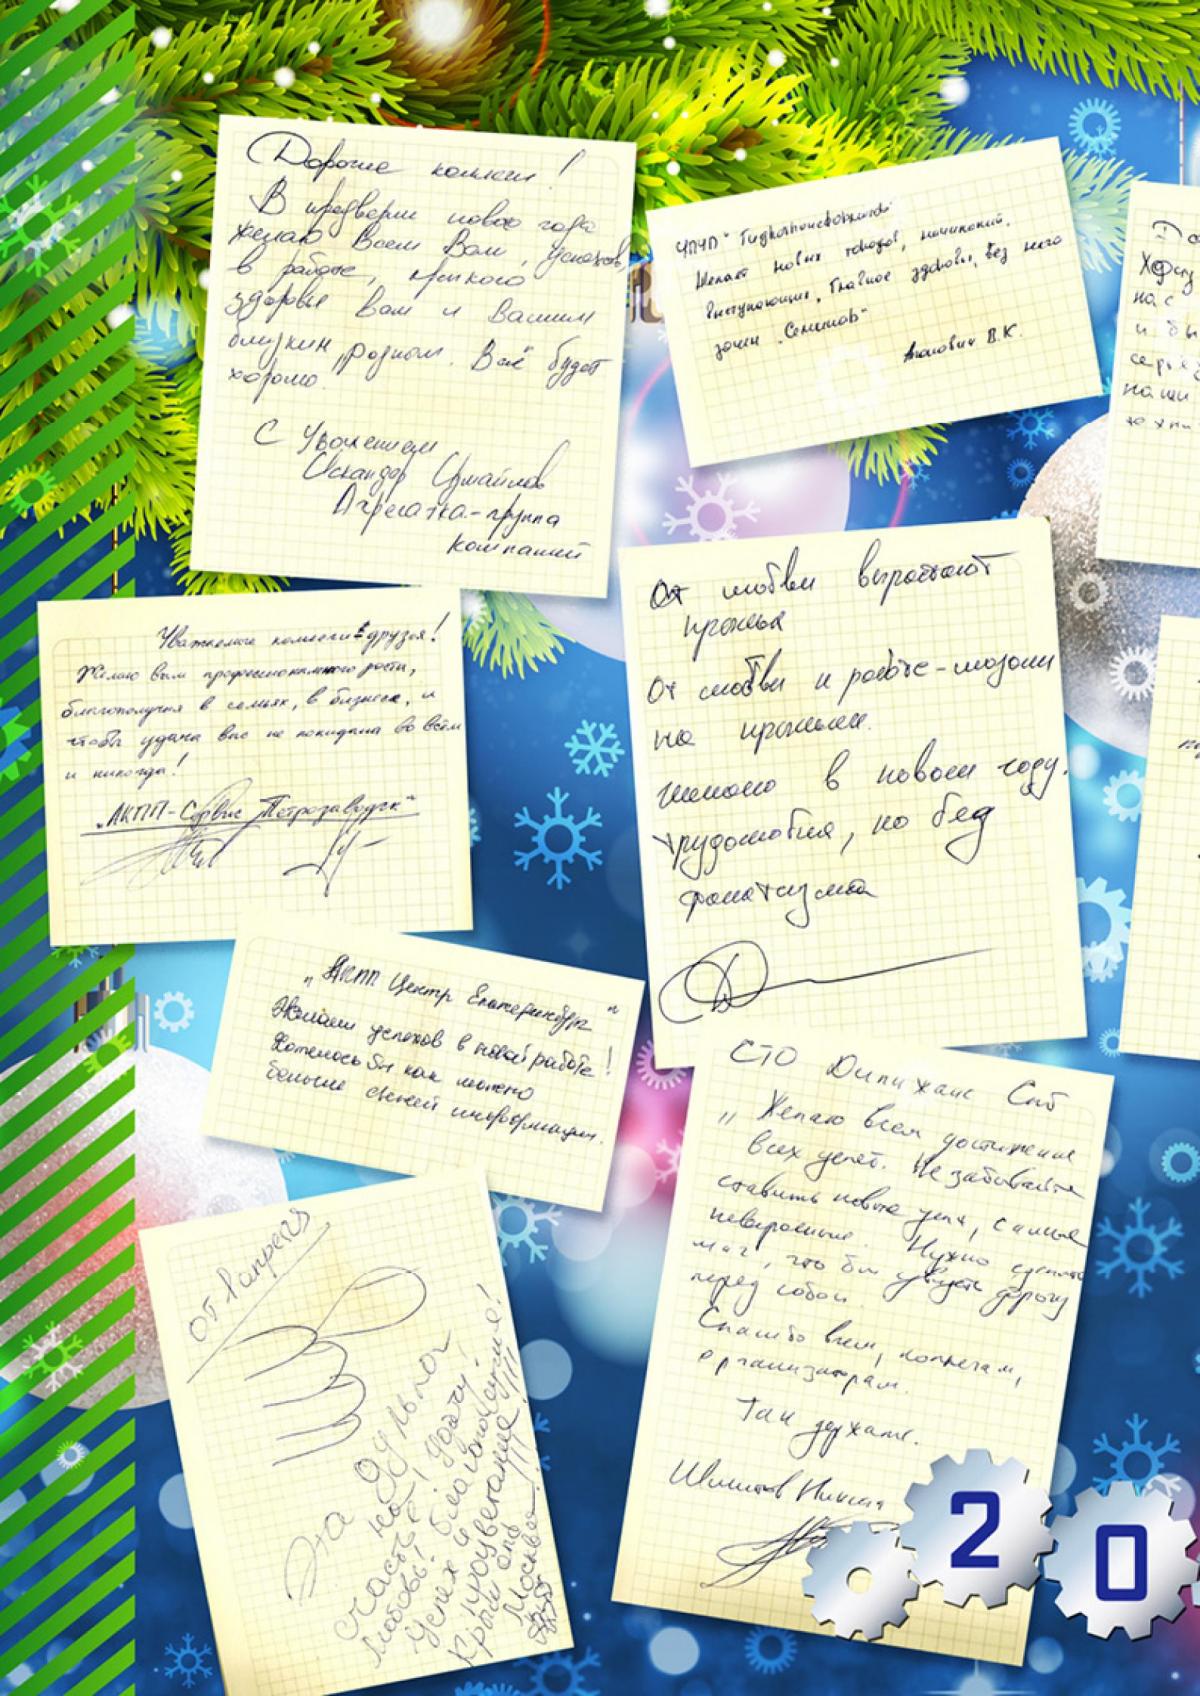 Дорогие коллеги!
В предверии нового года
желаю Всем Вам, успехов
в работе, крепкого
здоровья Вам и Вашим
близким, родным. Всё будет
хорошо.
С Уважением
Искандер Измайлов
Агрегатка-группа
компаний
ЧПУП
Желает новых городов, начинаний,
Главное здоровья, без него
В.К.
Уважаемые коллеги и друзья!
Желаю вам профессионального роста,
благополучия в семьях, в бизнесе, и
чтобы удача вас не покидала во всём
и никогда!
„АКПП-Сервис Петрозаводск"
От любви вырастают
крылья
От любви и работе - мозоли
на крыльях.
желаю в новом году.
трудолюбия, но без
фанатизма
„АКПП Центр Екатеринбург"
Желаем успехов в новой работе!
Хотелось бы как можно
больше свежей информации.
СТО Дилижанс Спб
„Желаю всем достижения
всех целей. Не забывайте
ставить новые цели, самые
невероятные. Нужно сделать
шаг, что бы увидеть дорогу
перед собой.
Спасибо всем, коллегам,
организаторам.
Так держать.
Никита
от
На
счастье! Удачи!
Любовь! благополучия!
Успех и процветание!!!!
Крым
Москва!!!
До
Хо
нас
и бы
серьез
наши
2 0